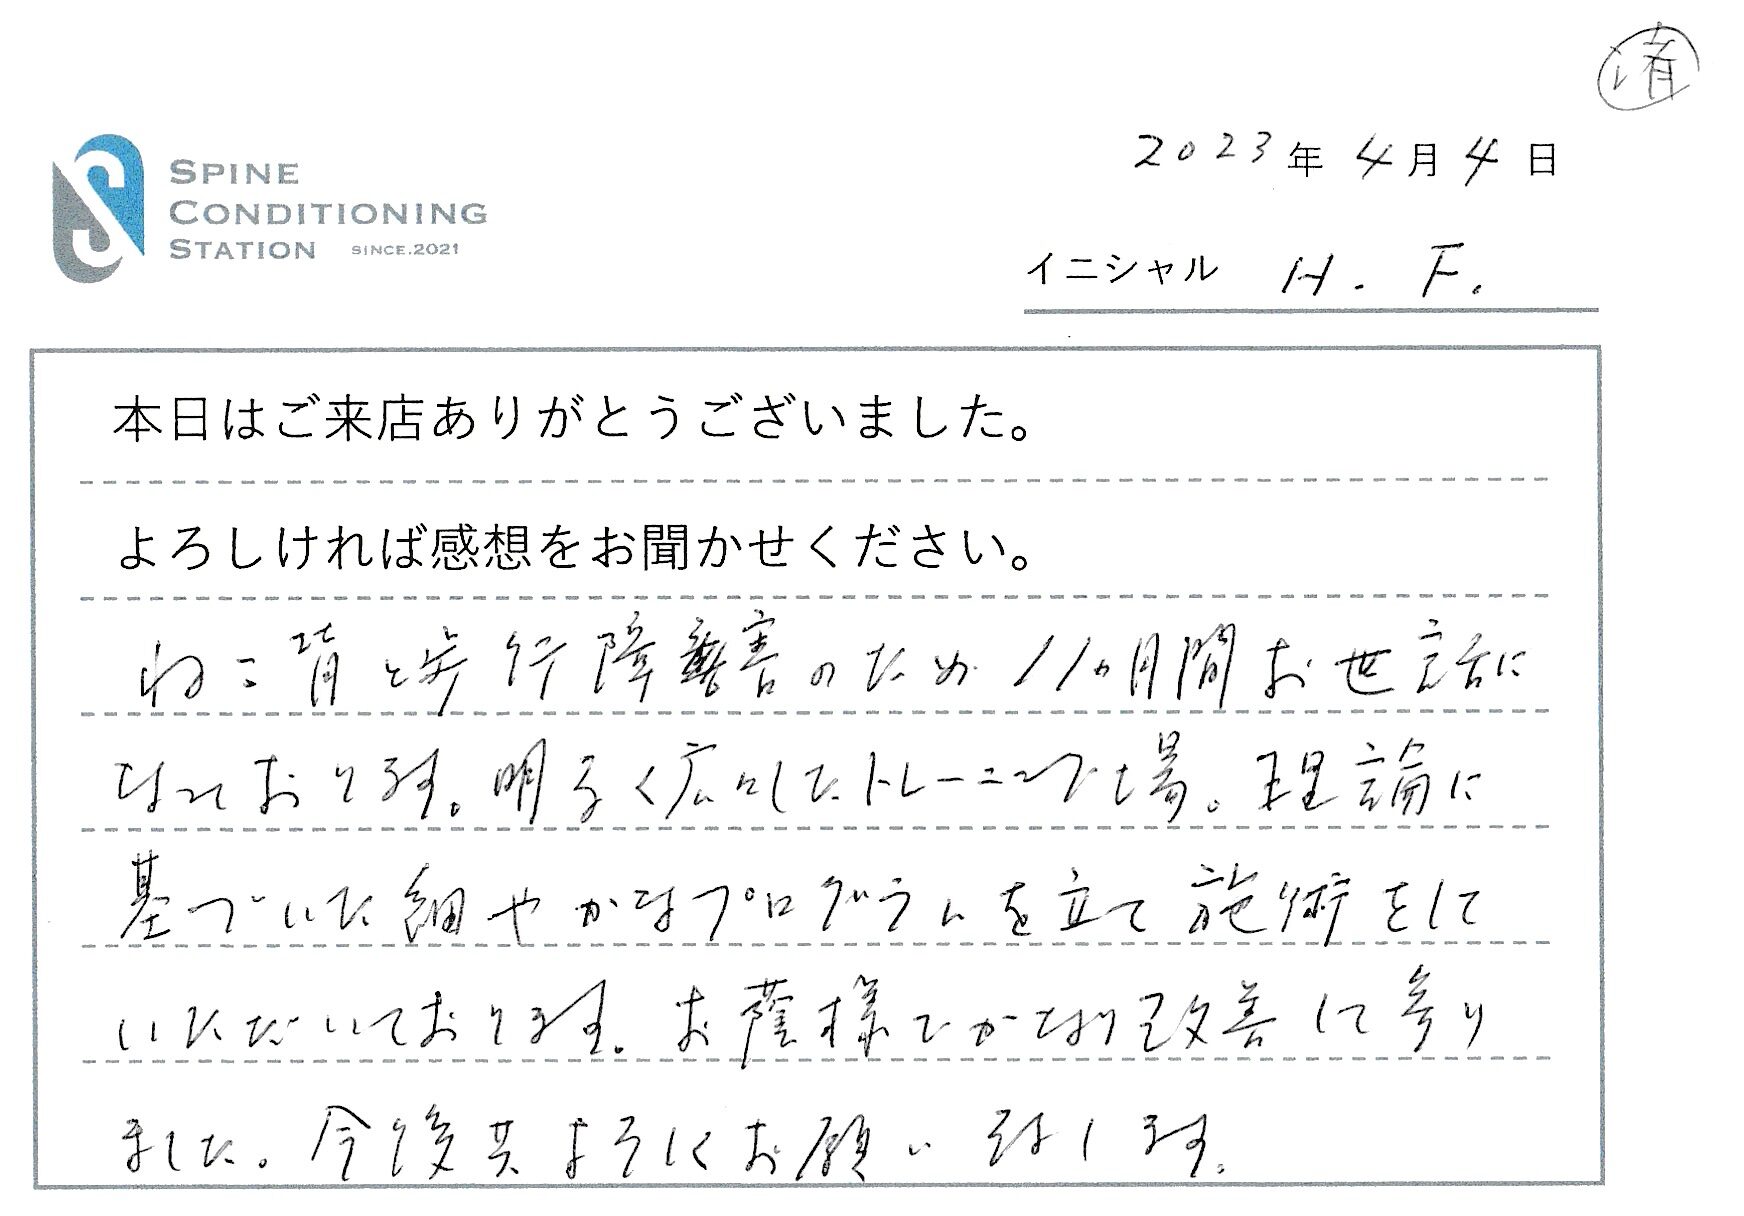 済
SPINE
CONDITIONING
STATION SINCE.2021
2023年4月4日
イニシャル H. F.
本日はご来店ありがとうございました。
よろしければ感想をお聞かせください。
ねこ背と歩行障害のため11ヵ月間お世話に
なっております。明るく広々したトレーニング場。理論に
基づいた細やかなプログラムを立て施術をして
いただいております。お蔭様でかなり改善して参り
ました。今後共よろしくお願い致します。